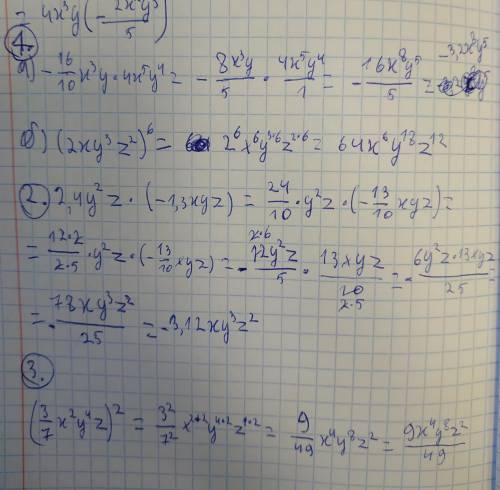 = 4x³y(-2x²y³/5)
4.
а) -16/10 x³y · 4x⁵y⁴ = -8x³y/5 · 4x⁵y⁴/1 = -16x⁸y⁵/5 = -3,2x⁸y⁵
б) (2xy³z²)⁶ = 2⁶x⁶y³·⁶z²·⁶ = 64x⁶y¹⁸z¹²
2. 2,4y²z · (-1,3xyz) = 24/10 · y²z · (-13/10 xyz) =
= 12·2/2·5 · y²z · (-13/10 xyz) = -12y²z/5 · 13xyz/10 = -6y²z·13xyz/25 =
= -78xy³z²/25 = -3,12xy³z²
3.
(3/7 x²y⁴z)² = 3²/7² x²·²y⁴·²z¹·² = 9/49 x⁴y⁸z² = 9x⁴y⁸z²/49